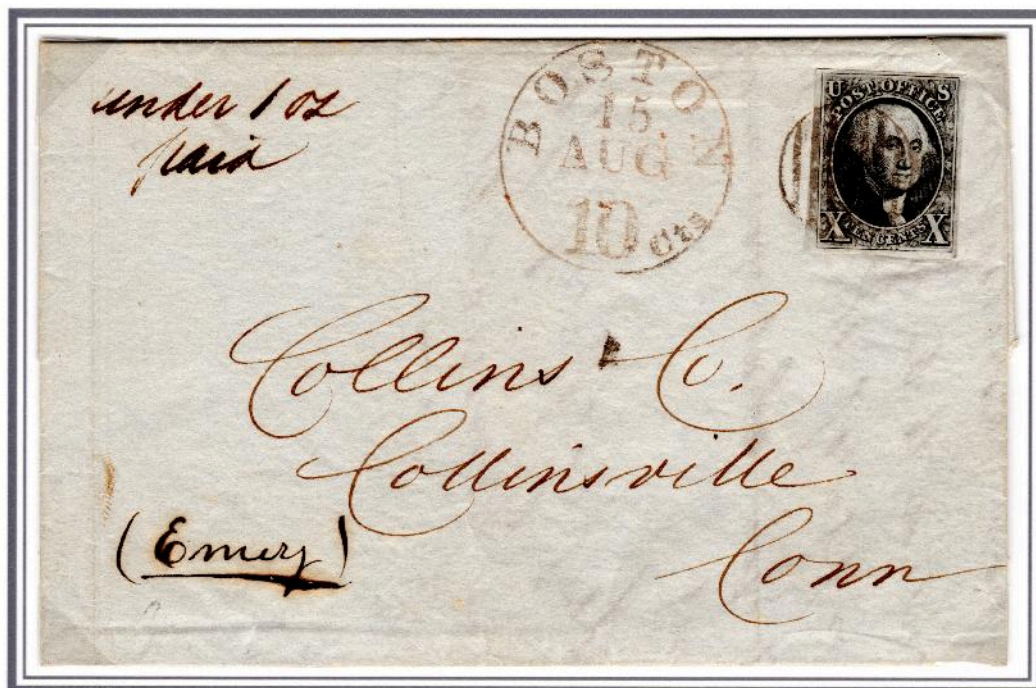 under 1 oz
paid
BOSTON
15
AUG
10 cts
U S
POST OFFICE
X TEN CENTS X
Collins & Co.
Collinsville
Conn
(Emery)